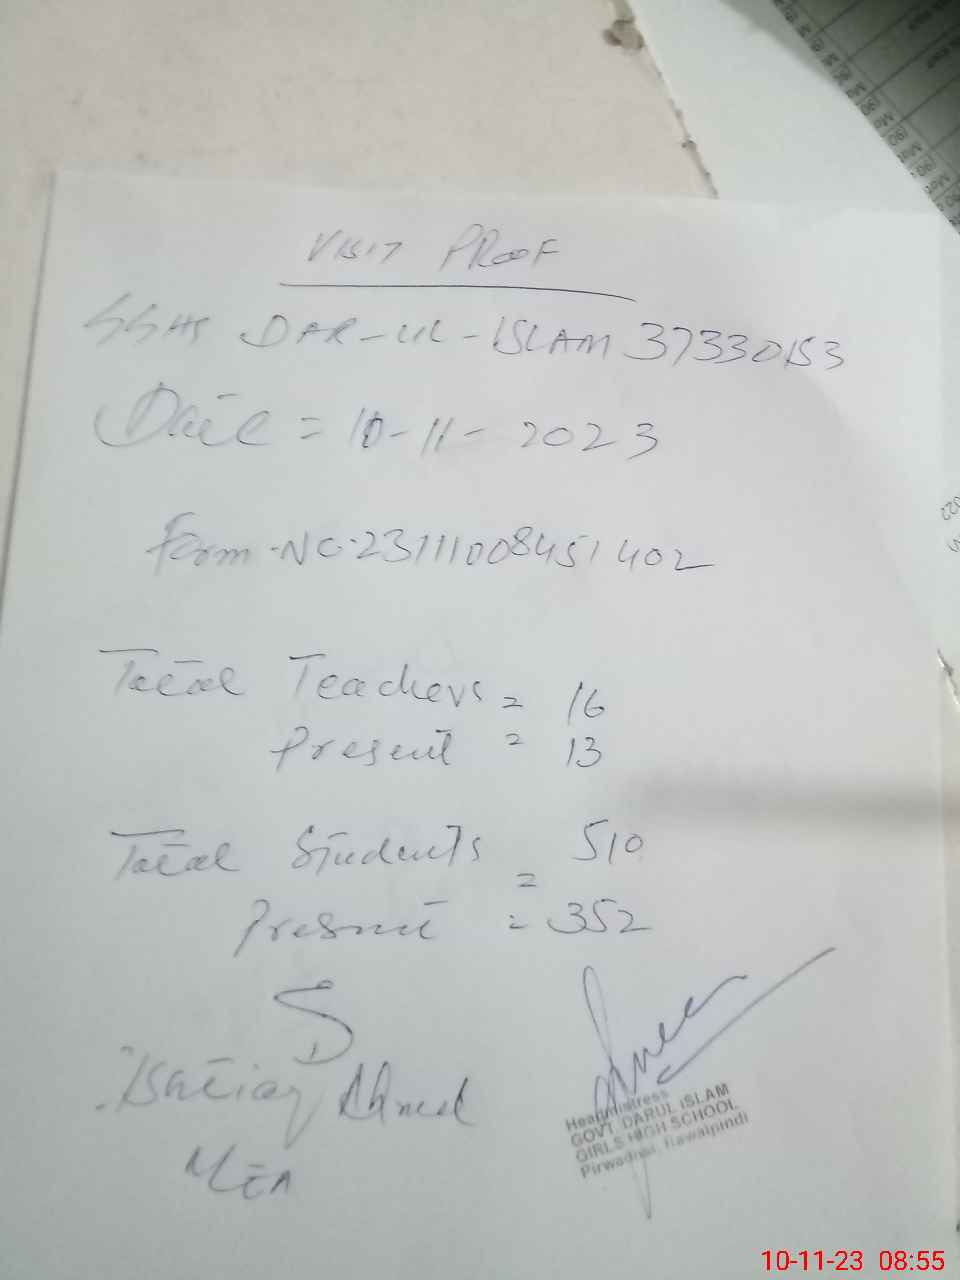 VISIT PROOF
GGHS DAR-UL-ISLAM 37330153
Date = 10-11-2023
Form NO. 23111008451402
Total Teachers = 16
Present = 13
Total Students = 510
Present = 352
Ishtiaq Ahmed
MEA
Headmistress
GOVT. DARUL ISLAM
GIRLS HIGH SCHOOL
Pirwadhai, Rawalpindi
10-11-23 08:55